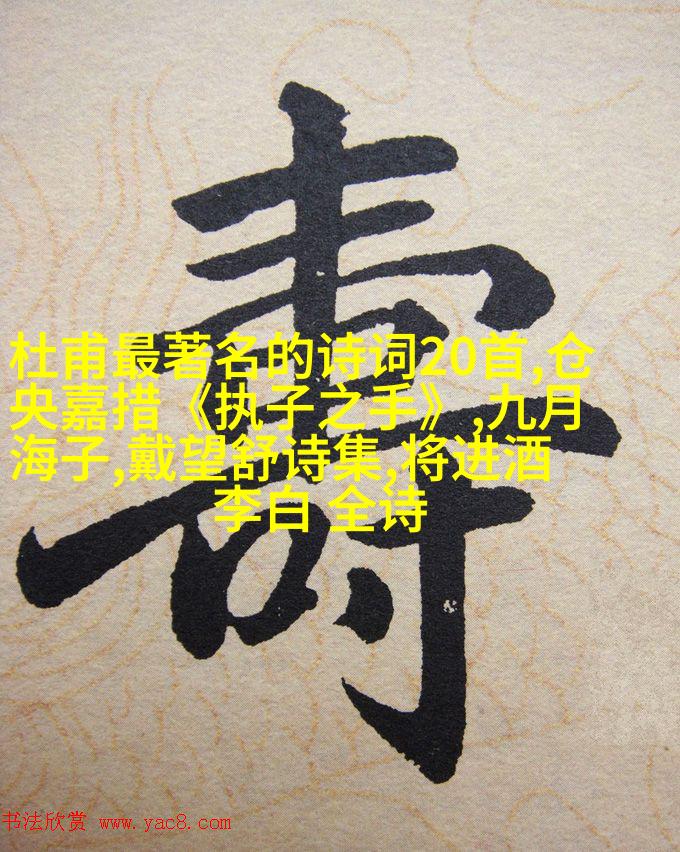 壽
杜甫最著名的诗词20首,仓
央嘉措《执子之手》,九月
海子,戴望舒诗集,将进酒
李白 全诗
书法欣赏 www.yac8.com